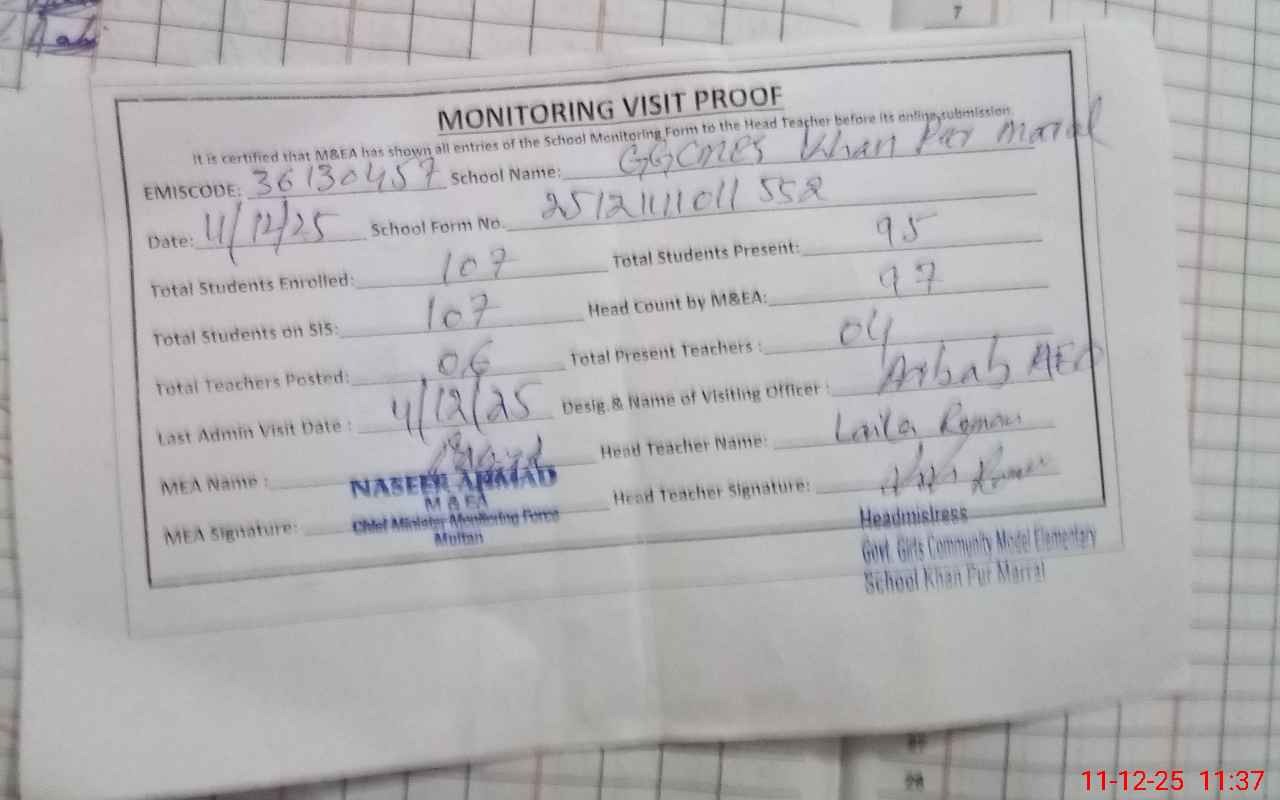 7
MONITORING VISIT PROOF
It is certified that M&EA has shown all entries of the School Monitoring Form to the Head Teacher before its online submission.
EMISCODE: 36130457 School Name: GGCMES Khan Pur Marral
Date: 11/12/25 School Form No. 25121111011552
Total Students Enrolled: 107 Total Students Present: 95
Total Students on SIS: 107 Head Count by M&EA: 97
Total Teachers Posted: 06 Total Present Teachers : 04
Last Admin Visit Date : 4/12/25 Desig.& Name of Visiting Officer : Arbab AEO
MEA Name : Head Teacher Name: Laila Roman
MEA Signature: Head Teacher Signature:
NASEER AHMAD
M & EA
Chief Minister Monitoring Force
Multan
Headmistress
Govt. Girls Community Model Elementary
School Khan Pur Marral
20
11-12-25 11:37